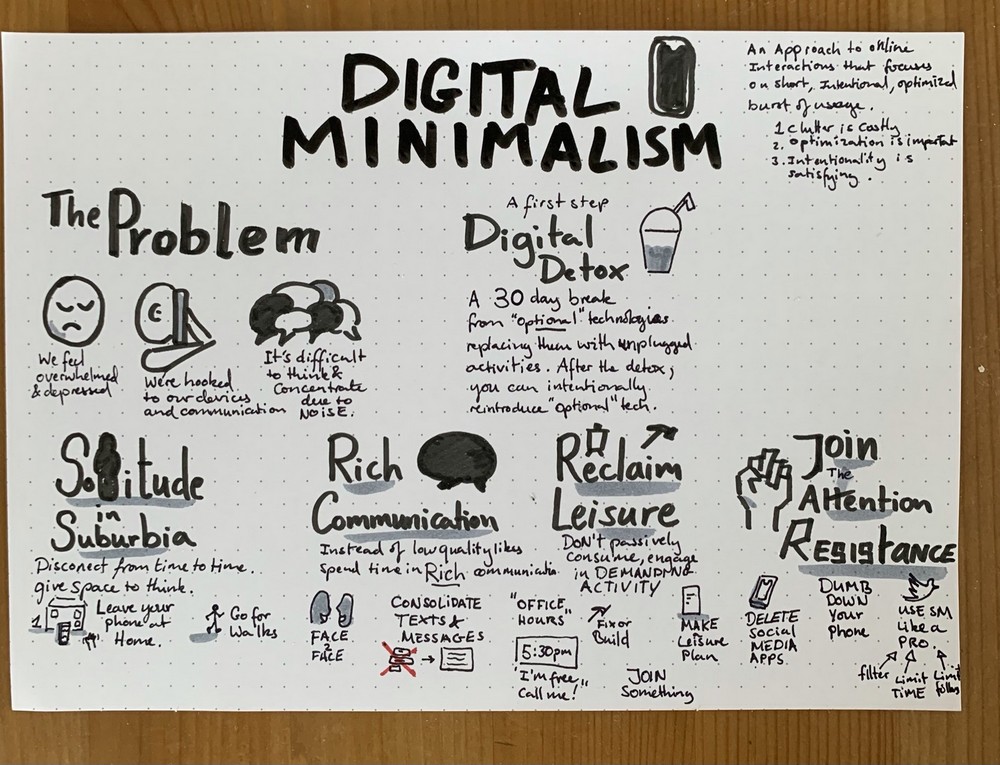 DIGITAL
MINIMALISM
An Approach to online
Interactions that focuses
on short, Intentional, optimized
burst of usage.
1 clutter is costly
2. Optimization is important
3. Intentionality is
satisfying.
The Problem
We feel
overwhelmed
& depressed
We're hooked
to our devices
and communication
It's difficult
to think &
Concentrate
due to
NOISE.
A first step
Digital
Detox
A 30 day break
from "optional" technologies
replacing them with unplugged
activities. After the detox,
you can intentionally
reintroduce "optional" tech.
Solitude
in
Suburbia
Disconect from time to time.
give space to think.
1
Leave your
phone at
Home.
Go for
Walks
Rich
Communication
Instead of low quality likes
spend time in Rich communicatio
FACE
2
FACE
CONSOLIDATE
TEXTS &
MESSAGES
"OFFICE
HOURS"
5:30pm
I'm free,
call me!
Reclaim
Leisure
Don't passively
consume, engage
in DEMANDING
ACTIVITY
Fix or
Build
MAKE
Leisure
Plan
JOIN
Something
Join
The
Attention
RESISTANCE
DELETE
Social
MEDIA
APPS.
DUMB
DOWN
Your
phone
USE SM
Like a
PRO.
filter
Limit
TIME
Limit